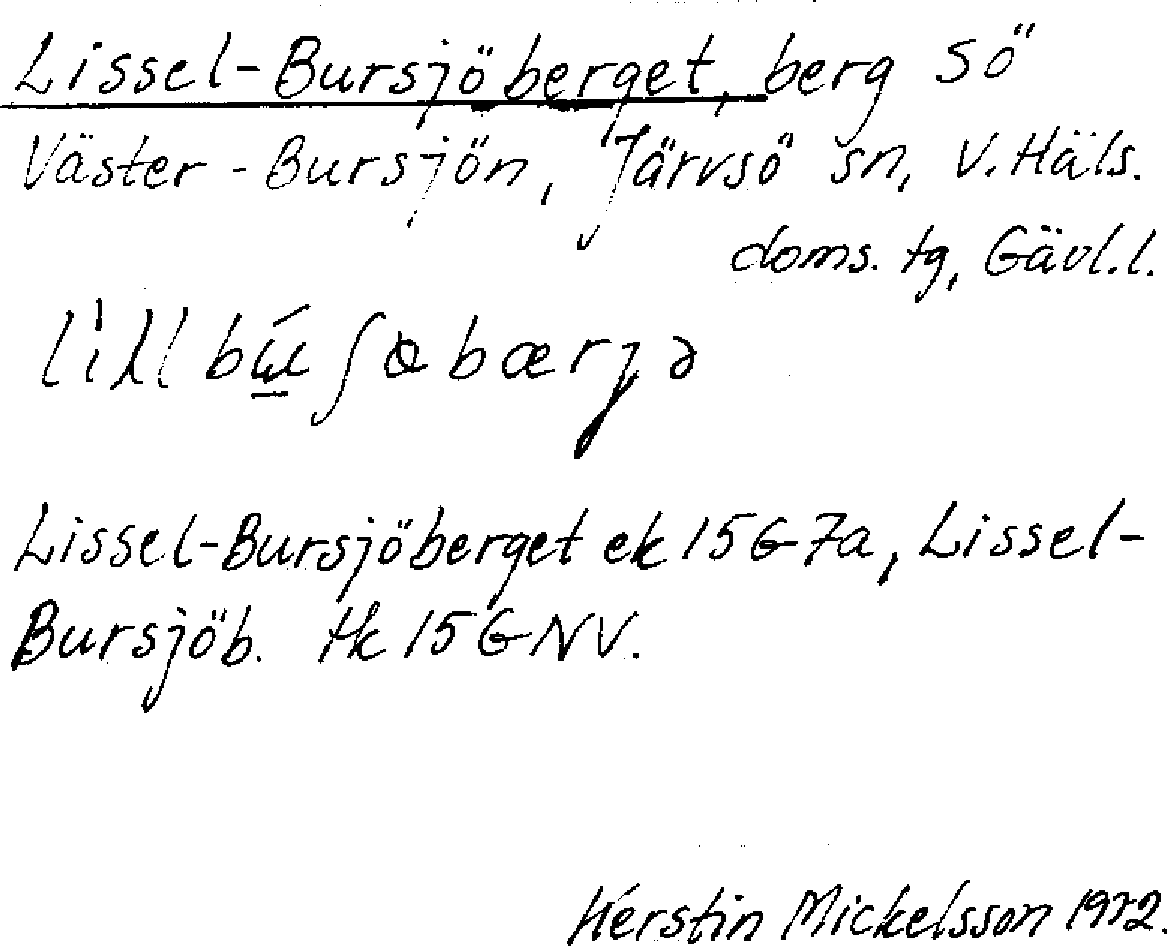 Lissel-Bursjöberget, berg SÖ
Väster-Bursjön, Järvsö sn, V. Häls.
doms. tg, Gävl. l.
Lissel-Bursjöberget ek 15G7a, Lissel-
Bursjöb. tk 15GNV.
Kerstin Mickelsson 1972.